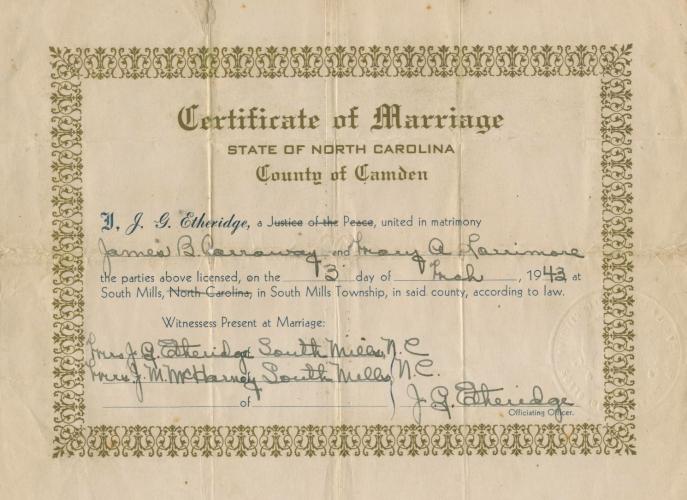 Certificate of Marriage
STATE OF NORTH CAROLINA
County of Camden
I, J. G. Etheridge, a Justice of the Peace, united in matrimony
James B. Carraway and Mary A. Larrimore
the parties above licensed, on the 3 day of Mch, 1943 at
South Mills, North Carolina, in South Mills Township, in said county, according to law.
Witnessess Present at Marriage:
Mrs J. G. Etheridge South Mills, N.C
Mrs. J. M. McHarney South Mills, N.C.
of
J G Etheridge
Officiating Officer.